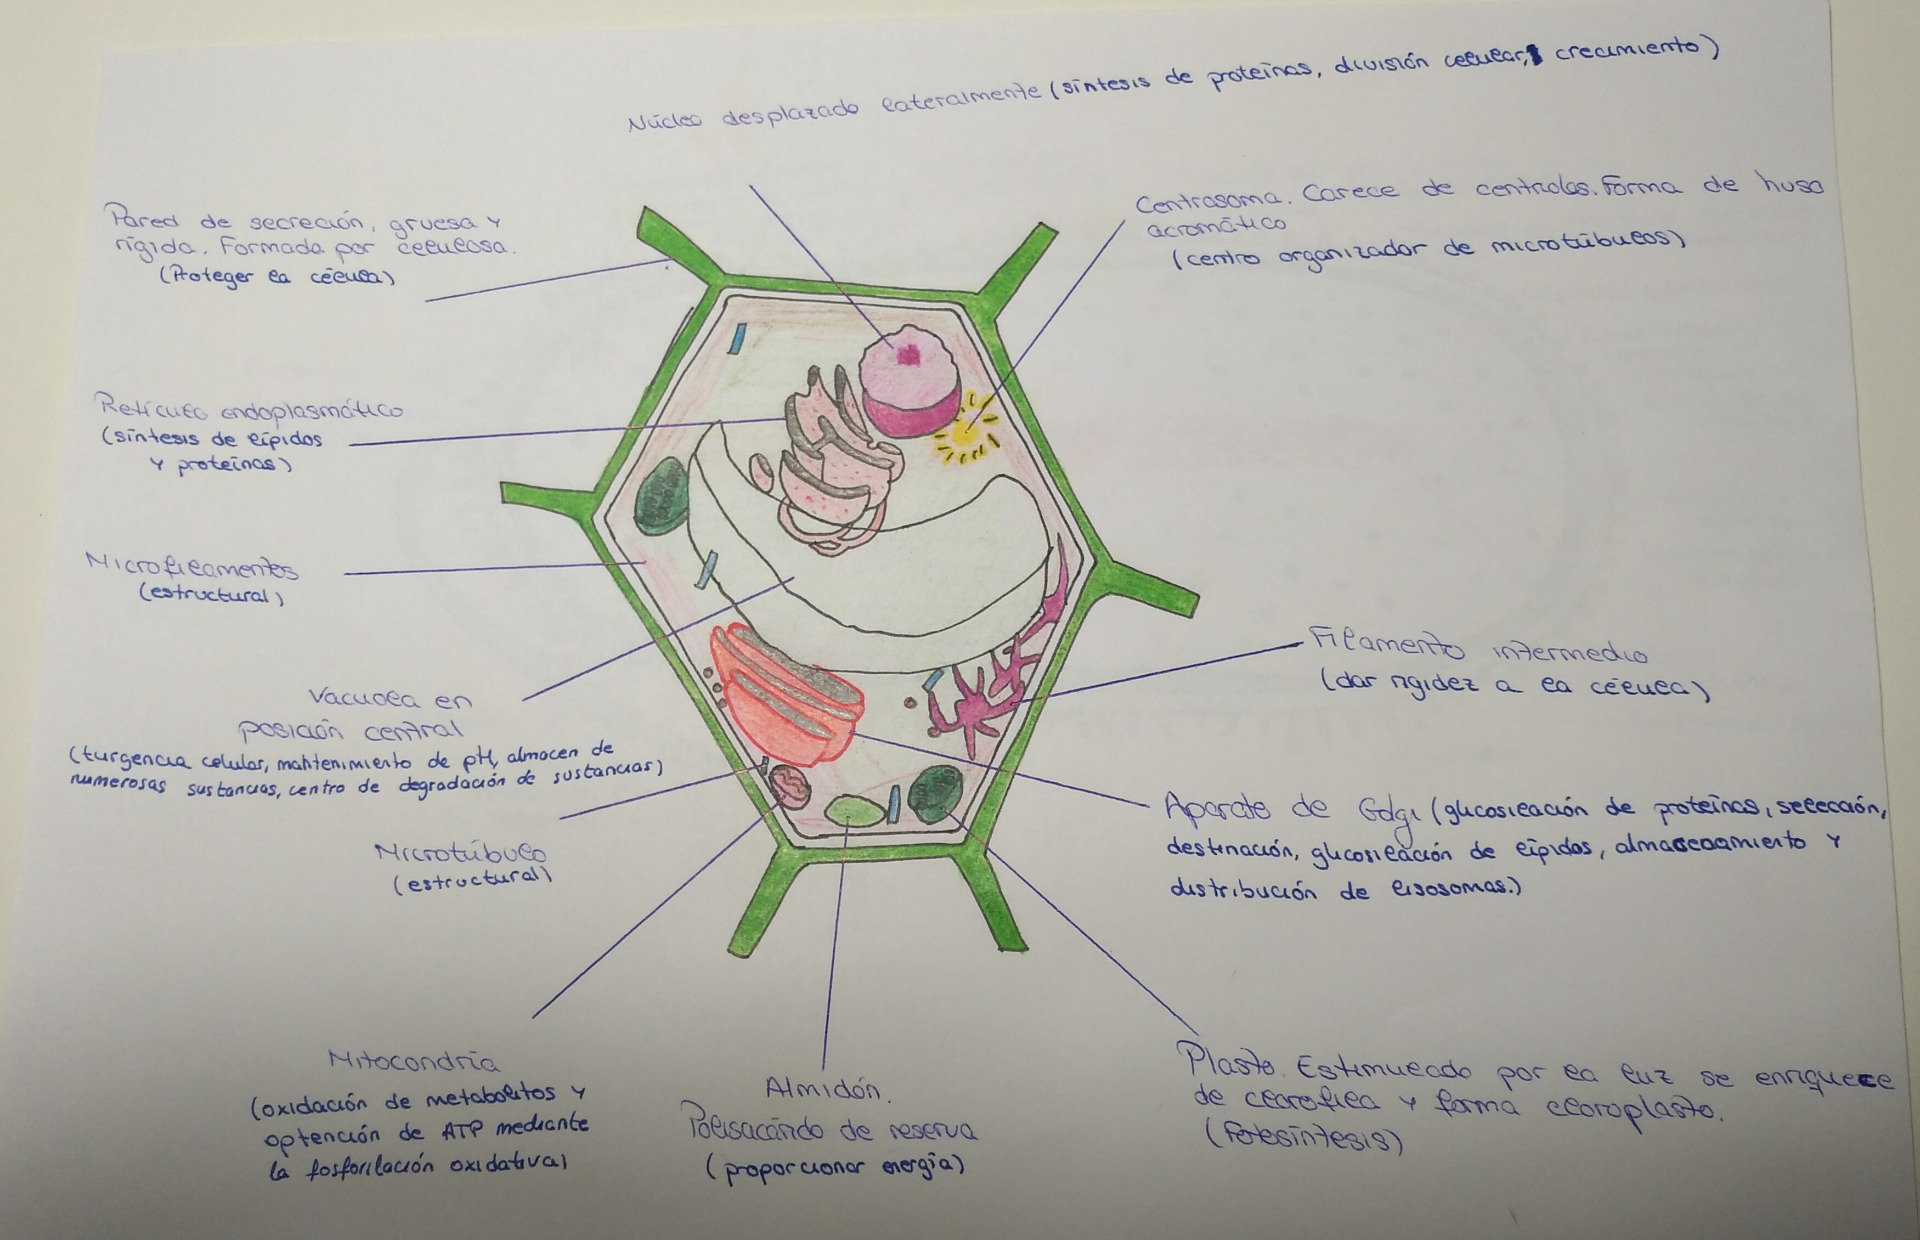 Núcleo desplazado lateralmente (síntesis de proteínas, división celular, crecimiento)
Pared de secreción, gruesa y
rígida. Formada por celulosa.
(Proteger la célula)
Centrosoma. Carece de centriolos. Forma de huso
acromático
(centro organizador de microtúbulos)
Retículo endoplasmático
(síntesis de lípidos
y proteínas)
Microfilamentos
(estructural)
Vacuola en
posición central
(turgencia celular, mantenimiento de pH, almacen de
numerosas sustancias, centro de degradación de sustancias)
Filamento intermedio
(dar rigidez a la célula)
Microtúbulo
(estructural)
Aparato de Golgi (glucosilación de proteínas, selección,
destinación, glucosilación de lípidos, almacenamiento y
distribución de lisosomas.)
Mitocondria
(oxidación de metabolitos y
optención de ATP mediante
la fosforilación oxidativa)
Almidón.
Polisacárido de reserva
(proporcionar energía)
Plasto. Estimulado por la luz se enriquece
de clorofila y forma cloroplasto.
(Fotosíntesis)